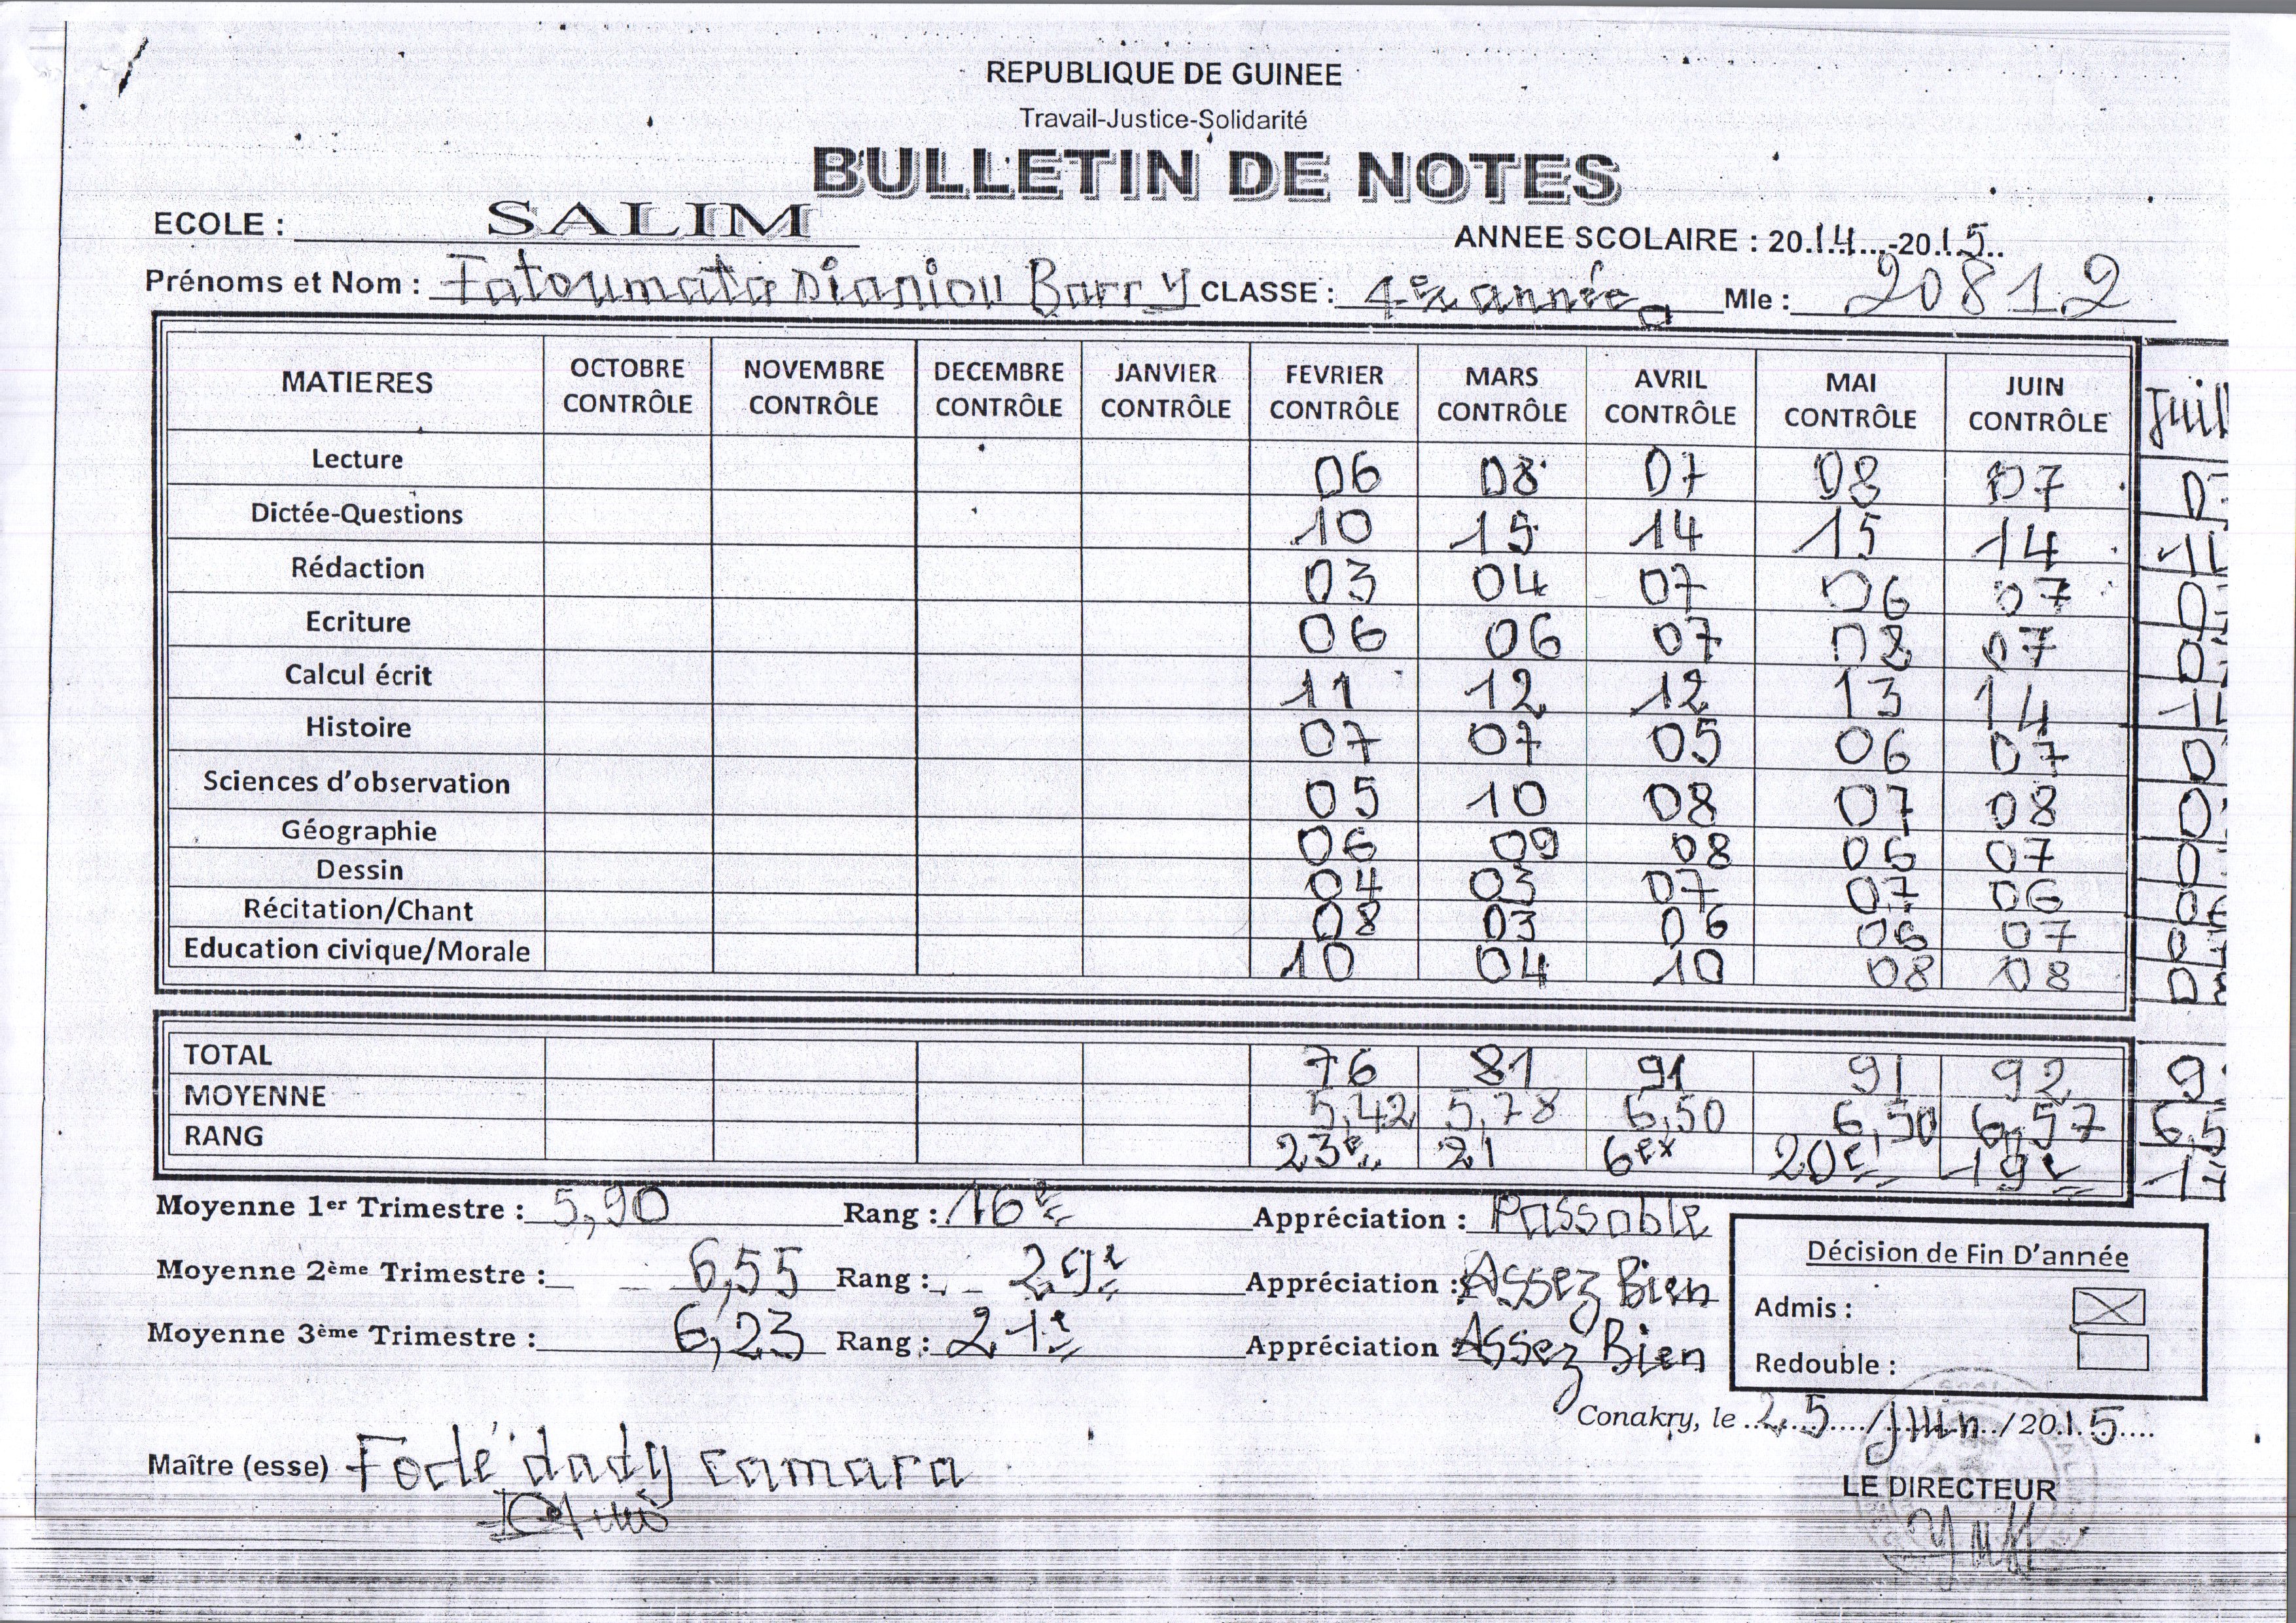 REPUBLIQUE DE GUINEE
Travail-Justice-Solidarité
BULLETIN DE NOTES
ECOLE : SALIM
ANNEE SCOLAIRE : 20.14...-20.15..
Prénoms et Nom : Fatoumata Dianiou Barry CLASSE : 4e année Mle : 20812
MATIERES OCTOBRE CONTRÔLE NOVEMBRE CONTRÔLE DECEMBRE CONTRÔLE JANVIER CONTRÔLE FEVRIER CONTRÔLE MARS CONTRÔLE AVRIL CONTRÔLE MAI CONTRÔLE JUIN CONTRÔLE Juil
Lecture 06 08 07 08 07
Dictée-Questions 10 15 14 15 14
Rédaction 03 04 07 06 07
Ecriture 06 06 07 08 07
Calcul écrit 11 12 12 13 14
Histoire 07 07 05 06 07
Sciences d'observation 05 10 08 07 08
Géographie 06 09 08 06 07
Dessin 04 03 07 07 06
Récitation/Chant 08 03 06 06 07
Education civique/Morale 10 04 10 08 08
TOTAL 76 81 91 91 92 9
MOYENNE 5,42 5,78 6,50 6,50 6,57 6,5
RANG 23e 21 6ex 20e 19e
Moyenne 1er Trimestre : 5,90 Rang : 16e Appréciation : Passable
Moyenne 2ème Trimestre : 6,55 Rang : Appréciation : Assez Bien
Moyenne 3ème Trimestre : 6,23 Rang : 21e Appréciation : Assez Bien
Décision de Fin D'année
Admis :
Redouble :
Conakry, le 25 /Juin/2015
Maître (esse) Fodé dady camara
LE DIRECTEUR